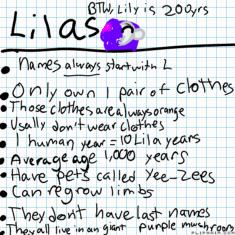 BTW, Lily is 200yrs
Lilas
Names always start with L
Only own 1 pair of clothes
Those clothes are always orange
Usally don't wear clothes
1 human year = 10 Lila years
Average age 1,000 years
Have pets called Yee-Zees
Can regrow limbs
They don't have last names
They all live in an giant purple mushroom